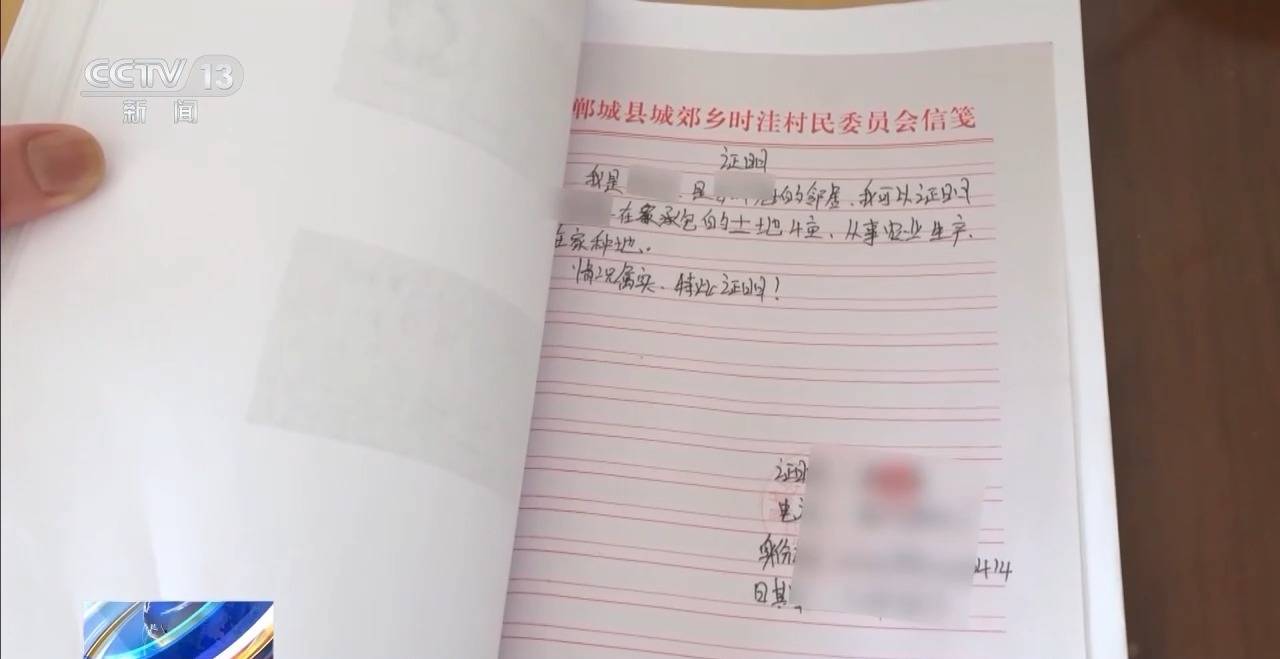 CCTV 13
新闻
郸城县城郊乡时洼村民委员会信笺
证明
我是 是 的邻居、我可以证明
在家承包的土地4亩、从事农业生产、
在家种地..
情况属实、特此证明!
证明
电
身份 414
日期